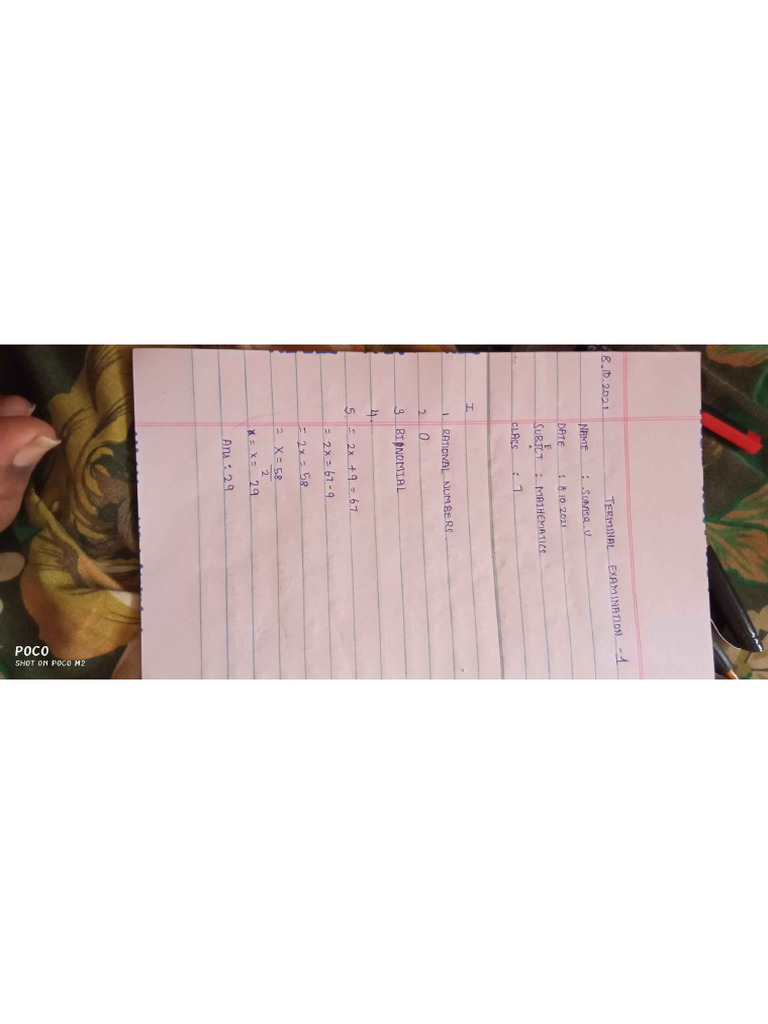 8.10.2021
TERMINAL EXAMINATION - 1
NAME :
DATE : 8.10.2021
SUBJECT : MATHEMATICS
CLASS : 7
I
1 RATIONAL NUMBERS.
2 0
3 BINOMIAL
4.
5. = 2x + 9 = 67
= 2x = 67 - 9
= 2x = 58
= x = 58
2
x = x = 29
Ans : 29
POCO
SHOT ON POCO M2